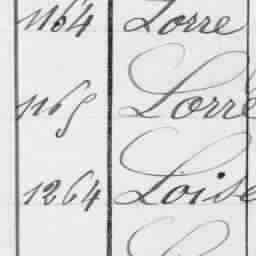 1164 Lorre
1165 Lorre
1264 Loise